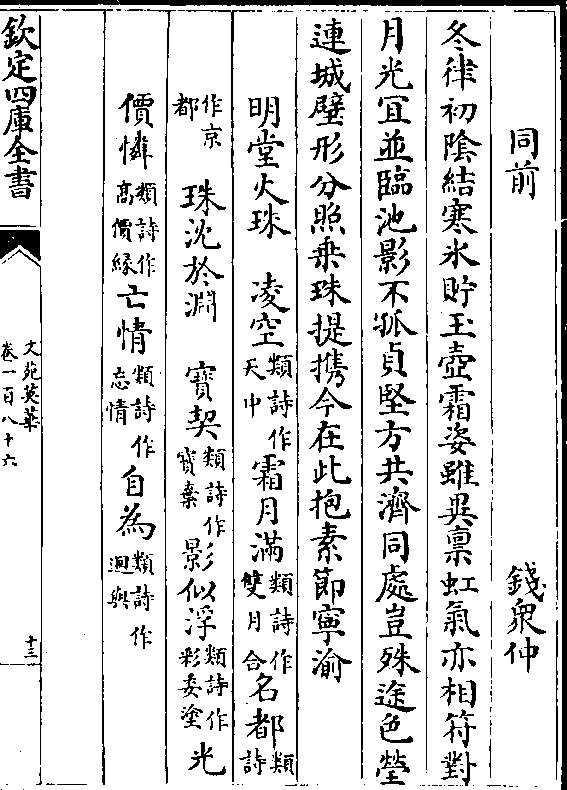 同前
錢衆仲
冬律初陰結寒氷貯玉壺霜姿雖異禀虹氣亦相符對
月光冝並臨池影不孤貞堅方共濟同處豈殊途色瑩
連城壁形分照乗珠提攜今在此抱素節寧渝
明堂火珠　凌空類詩作天中　霜月滿類詩作雙月合　名都類詩
作京都　珠沈於淵　寶契類詩作寶棄　影似浮類詩作彩委塗　光
價憐類詩作高價緣　亡情類詩作忘情　自為類詩作迴與
欽定四庫全書
文苑英華
卷一百八十六
十三